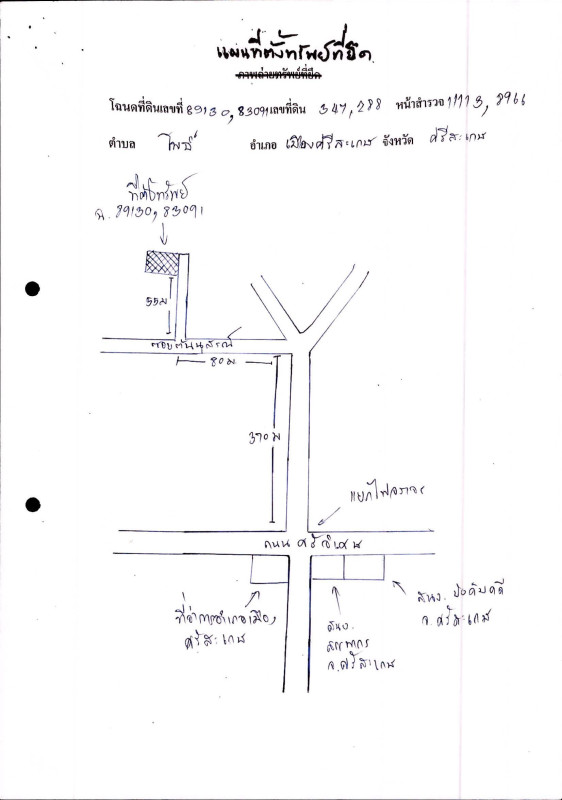 แผนที่ตั้งทรัพย์ที่ยึด
ภาพถ่ายทรัพย์ที่ยึด
โฉนดที่ดินเลขที่ 89130, 83091 เลขที่ดิน 347, 288 หน้าสำรวจ 11113, 8966
ตำบล โพธิ์ อำเภอ เมืองศรีสะเกษ จังหวัด ศรีสะเกษ
ที่ตั้งทรัพย์
ฉ. 89130, 83091
55 ม
80 ม
370 ม
แยกไฟจราจร
ถนน
ที่ว่าการอำเภอเมือง
ศรีสะเกษ
สนง.
สรรพากร
จ.ศรีสะเกษ
สนง. บังคับคดี
จ.ศรีสะเกษ